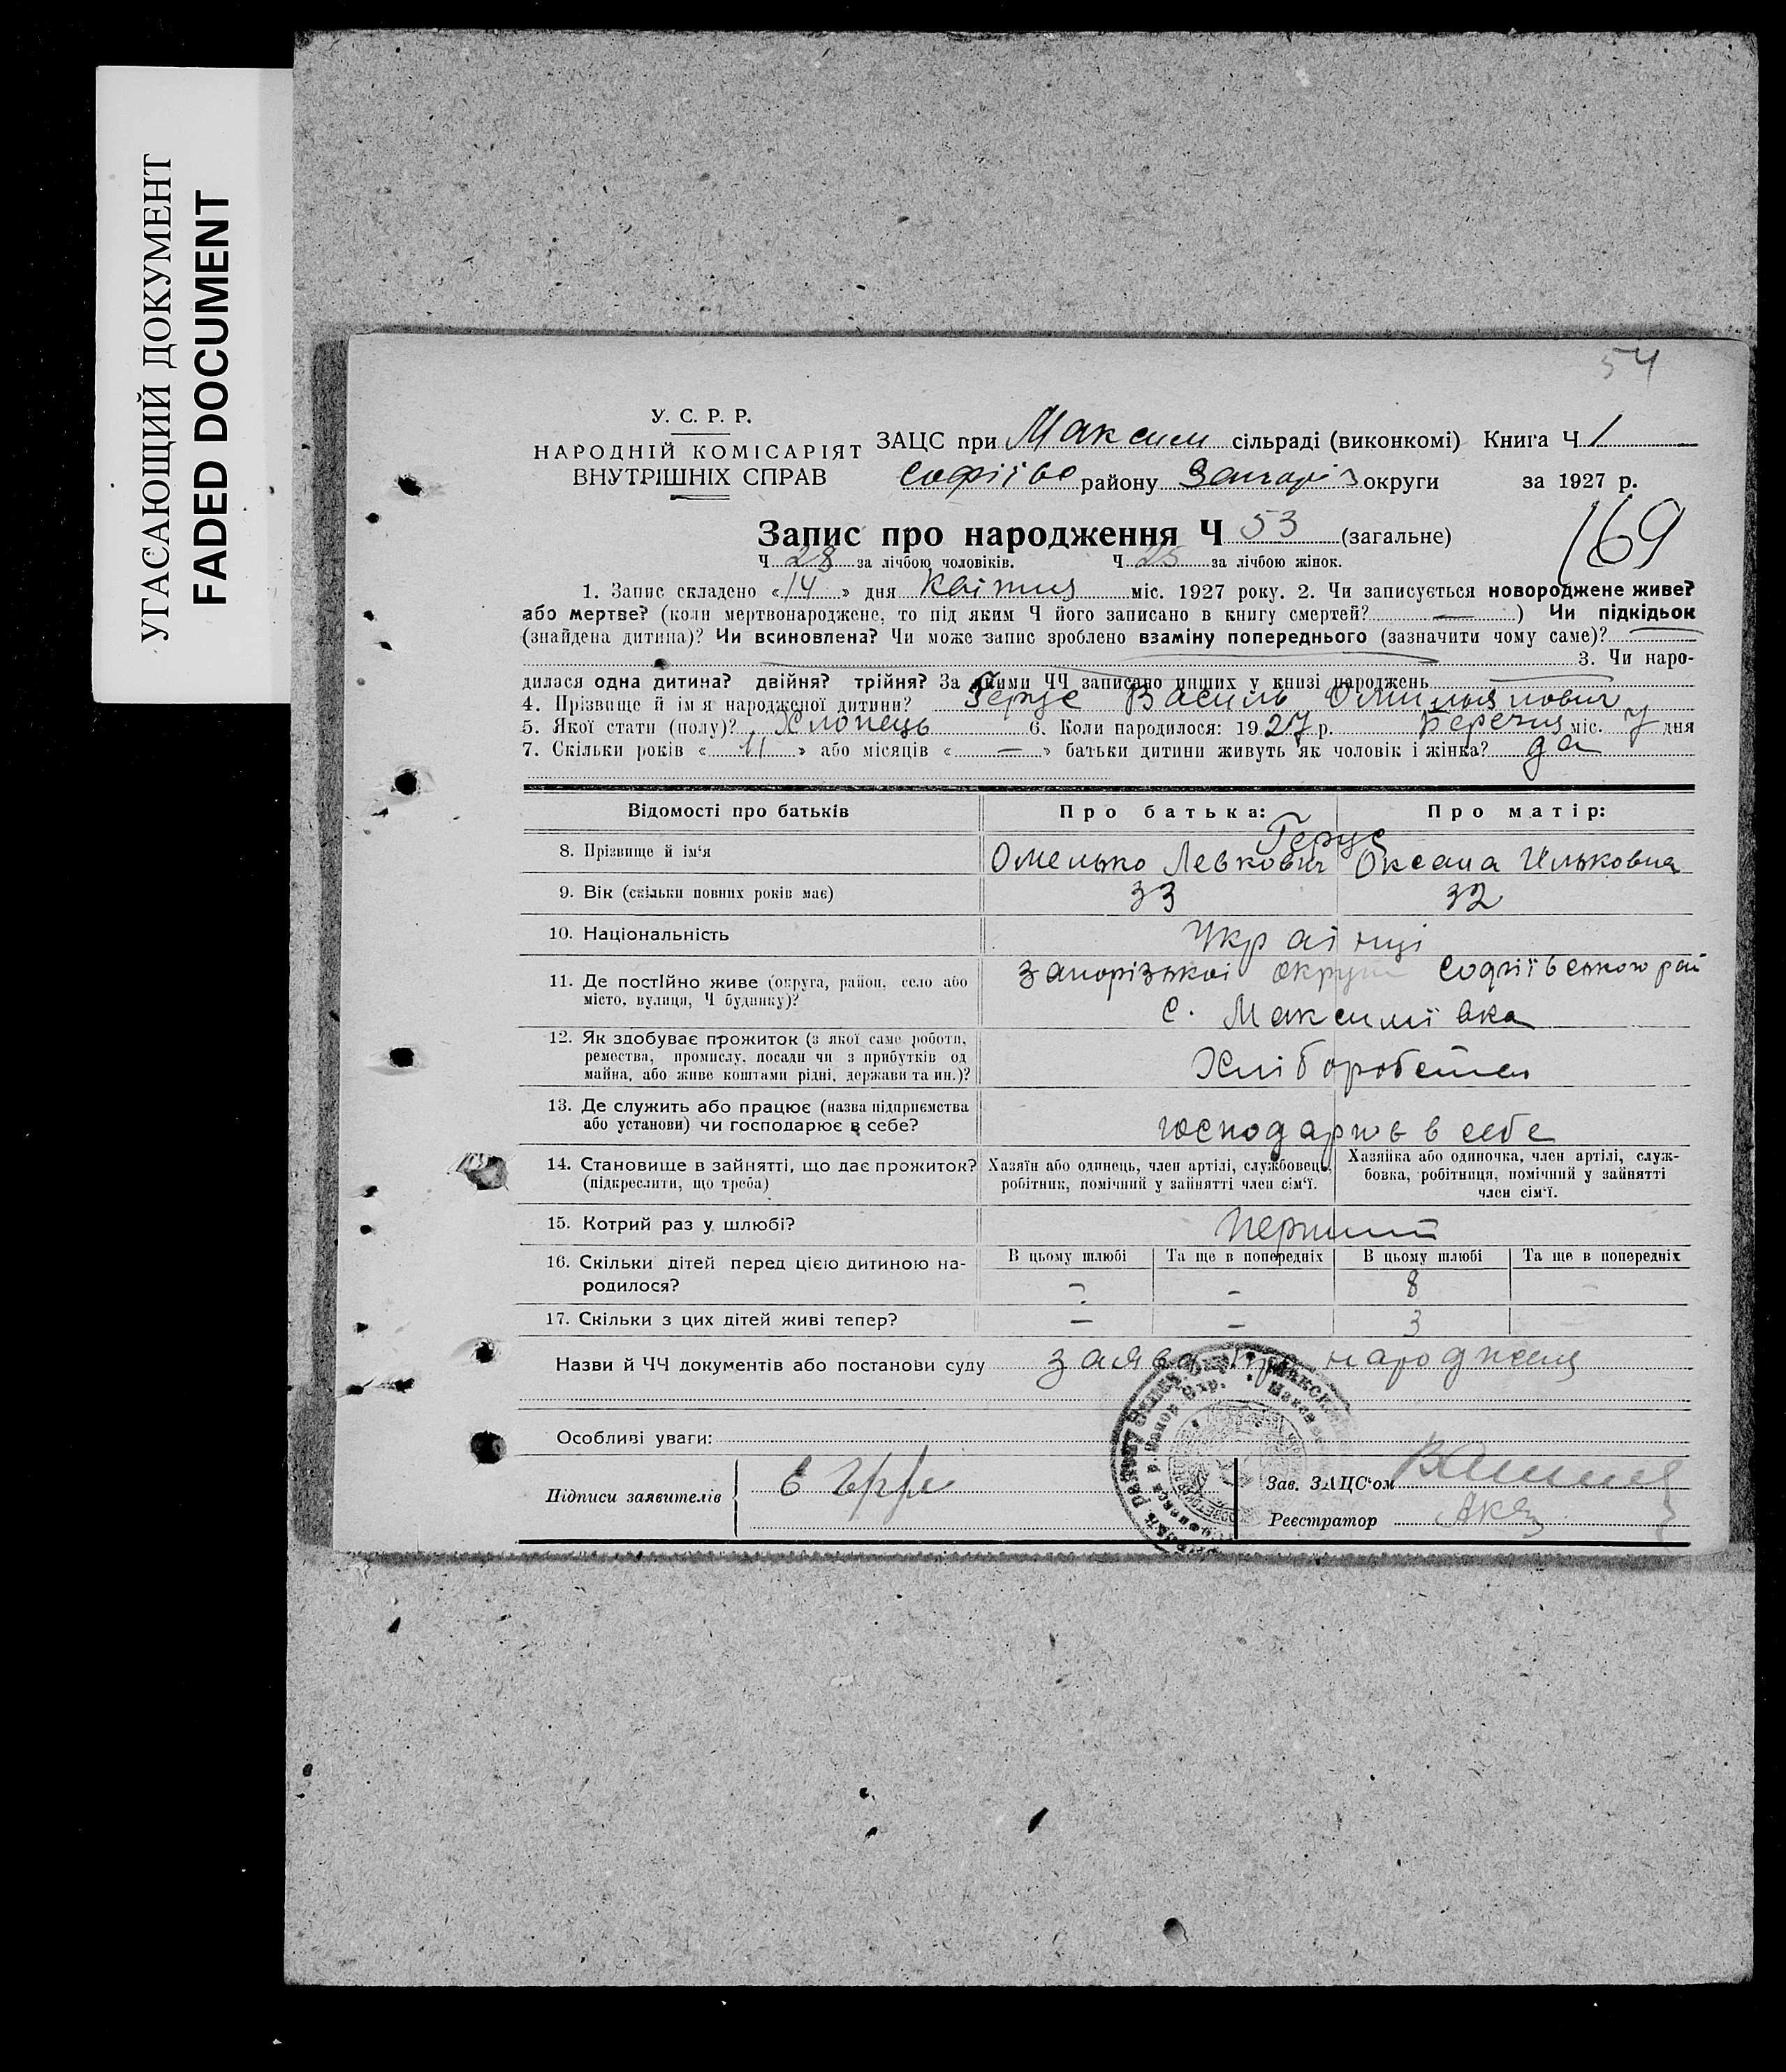 УГАСАЮЩИЙ ДОКУМЕНТ
FADED DOCUMENT
54
У. С. Р. Р.
НАРОДНІЙ КОМІСАРІЯТ
ВНУТРІШНІХ СПРАВ
ЗАЦС при Максим сільраді (виконкомі) Книга Ч 1
Софіївс району Запоріз округи за 1927 р.
169
Запис про народження Ч 53 (загальне)
Ч 28 за лічбою чоловіків. Ч 25 за лічбою жінок.
1. Запис складено «14» дня Квітня міс. 1927 року. 2. Чи записується новороджене живе?
або мертве? (коли мертвонароджене, то під яким Ч його записано в книгу смертей? —) Чи підкідьок
(знайдена дитина)? Чи всиновлена? Чи може запис зроблено взаміну попереднього (зазначити чому саме)?
3. Чи наро-
дилася одна дитина? двійня? трійня? За якими ЧЧ записано инших у книзі народжень
4. Прізвище й ім'я народженої дитини? Герус Василь
5. Якої стати (полу)? Хлопець 6. Коли народилося: 1927 р. Березня міс. 7 дня
7. Скільки років «11» або місяців «—» батьки дитини живуть як чоловік і жінка? да
Відомості про батьків Про батька: Про матір:
Герус
8. Прізвище й ім'я Омелько Левкович Оксана Ильковна
9. Вік (скільки повних років має) 33 32
10. Національність Украінці
11. Де постійно живе (округа, район, село або Запорізькоі округи Софіївського рай
місто, вулиця, Ч будинку)? с. Максимівка
12. Як здобуває прожиток (з якої саме роботи,
ремества, промислу, посади чи з прибутків од
майна, або живе коштами рідні, держави та ин.)? Хліборобство
13. Де служить або працює (назва підприємства
або установи) чи господарює в себе? господарює в себе
14. Становище в зайнятті, що дає прожиток?
(підкреслити, що треба)
Хазяїн або одинець, член артілі, службовець,
робітник, помічний у зайнятті член сім'ї.
Хазяйка або одиночка, член артілі, служ-
бовка, робітниця, помічний у зайнятті
член сім'ї.
15. Котрий раз у шлюбі? Перший
16. Скільки дітей перед цією дитиною на-
родилося?
В цьому шлюбі Та ще в попередніх В цьому шлюбі Та ще в попередніх
— — 8 —
17. Скільки з цих дітей живі тепер? — — 3 —
Назви й ЧЧ документів або постанови суду заява про народженя
Особливі уваги:
Підписи заявителів
Зав. ЗАЦС'ом
Реєстратор